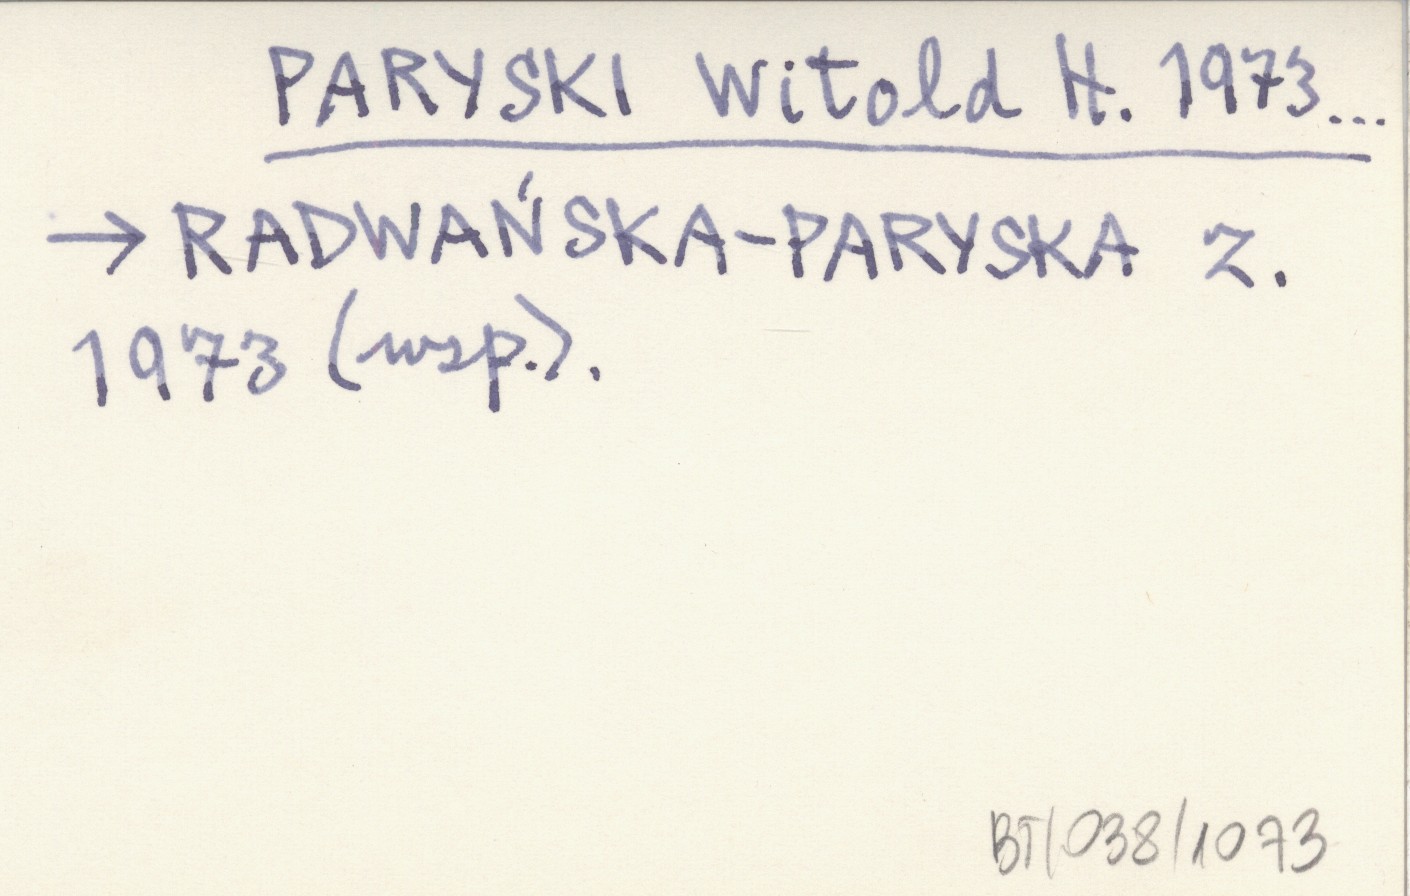 PARYSKI Witold H. 1973...
→ RADWAŃSKA-PARYSKA Z.
1973 (wsp.).
BT/038/1073